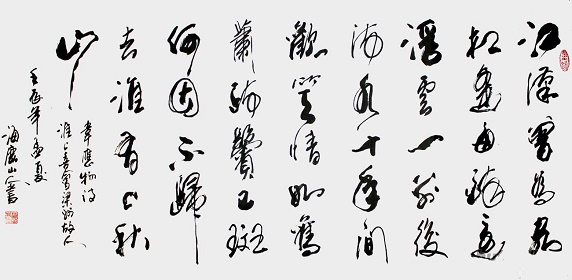 江漢曾為客
相逢每醉還
浮雲一别後
流水十年間
歡笑情如舊
蕭疏鬢已斑
何因不歸
去淮有上秋
山
韋應物詩
淮上喜會梁州故人
壬辰年孟夏
山人書